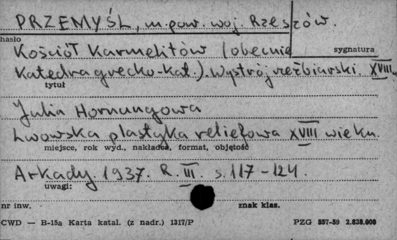 PRZEMYŚL, m. pow. woj. Rzeszów.
hasło
Kościół Karmelitów (obecnie
sygnatura
Katedra grecko-kat.). Wystrój rzeźbiarski. XVIII
tytuł
Julia Hornungowa
Lwowska plastyka reliefowa XVIII wieku.
miejsce, rok wyd., nakładca, format, objętość
Arkady. 1937. R. III. s. 117-124.
uwagi:
nr inw.
znak klas.
CWD — B-15a Karta katal. (z nadr.) 1317/P
PZG 857-59 2.828.000